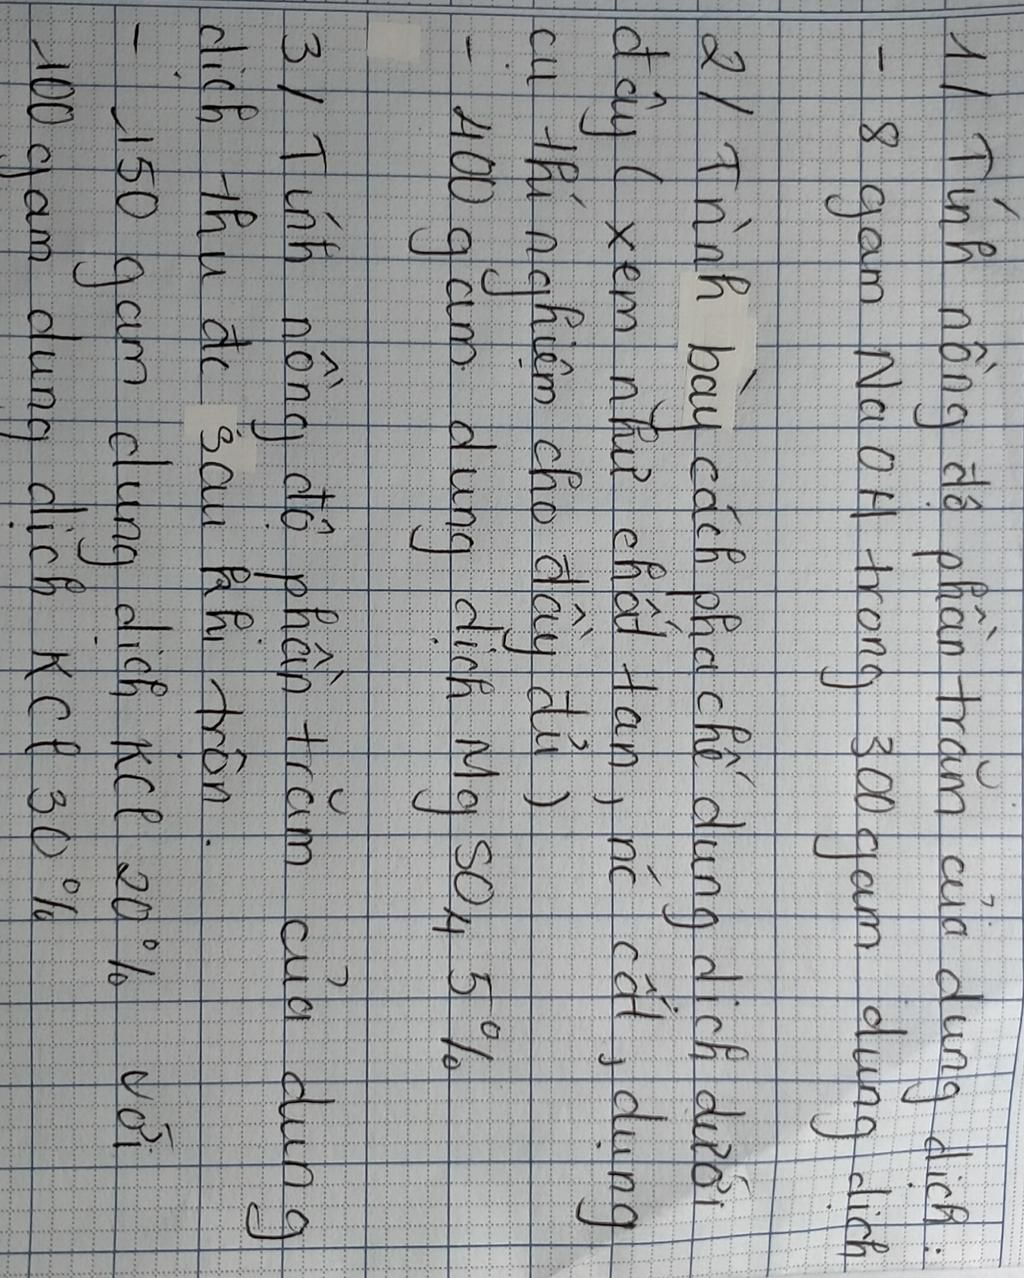 1/ Tính nồng độ phần trăm của dung dịch:
- 8 gam NaOH trong 300gam dung dịch
2/ Trình bày cách pha chế dung dịch dưới
đây ( xem như chất tan, nc cất, dụng
cụ thí nghiệm cho đầy đủ)
- 400gam dung dịch MgSO4 5%
3/ Tính nồng độ phần trăm của dung
dịch thu đc sau khi trộn.
- 150 gam dung dịch KCl 20% với
100gam dung dịch KCl 30%